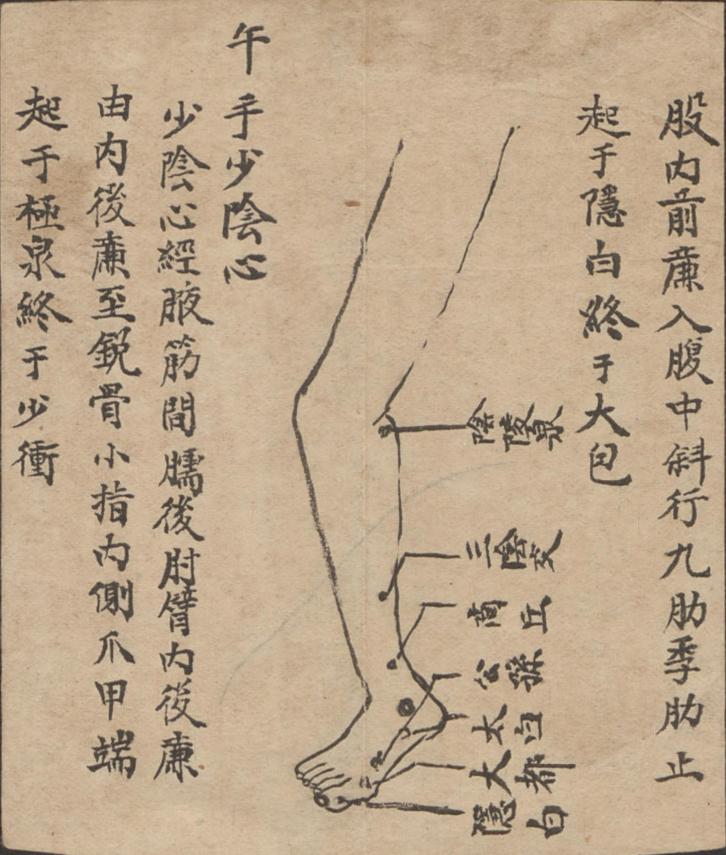 股内前廉入腹中斜行九肋季肋止
起于隱白終于大包
陰陵泉
三陰交
商丘
公孫
太白
大都
隱白
午 手少陰心
少陰心經腋筋間臑後肘臂内後廉
由内後廉至銳骨小指内側爪甲端
起于極泉終于少衝